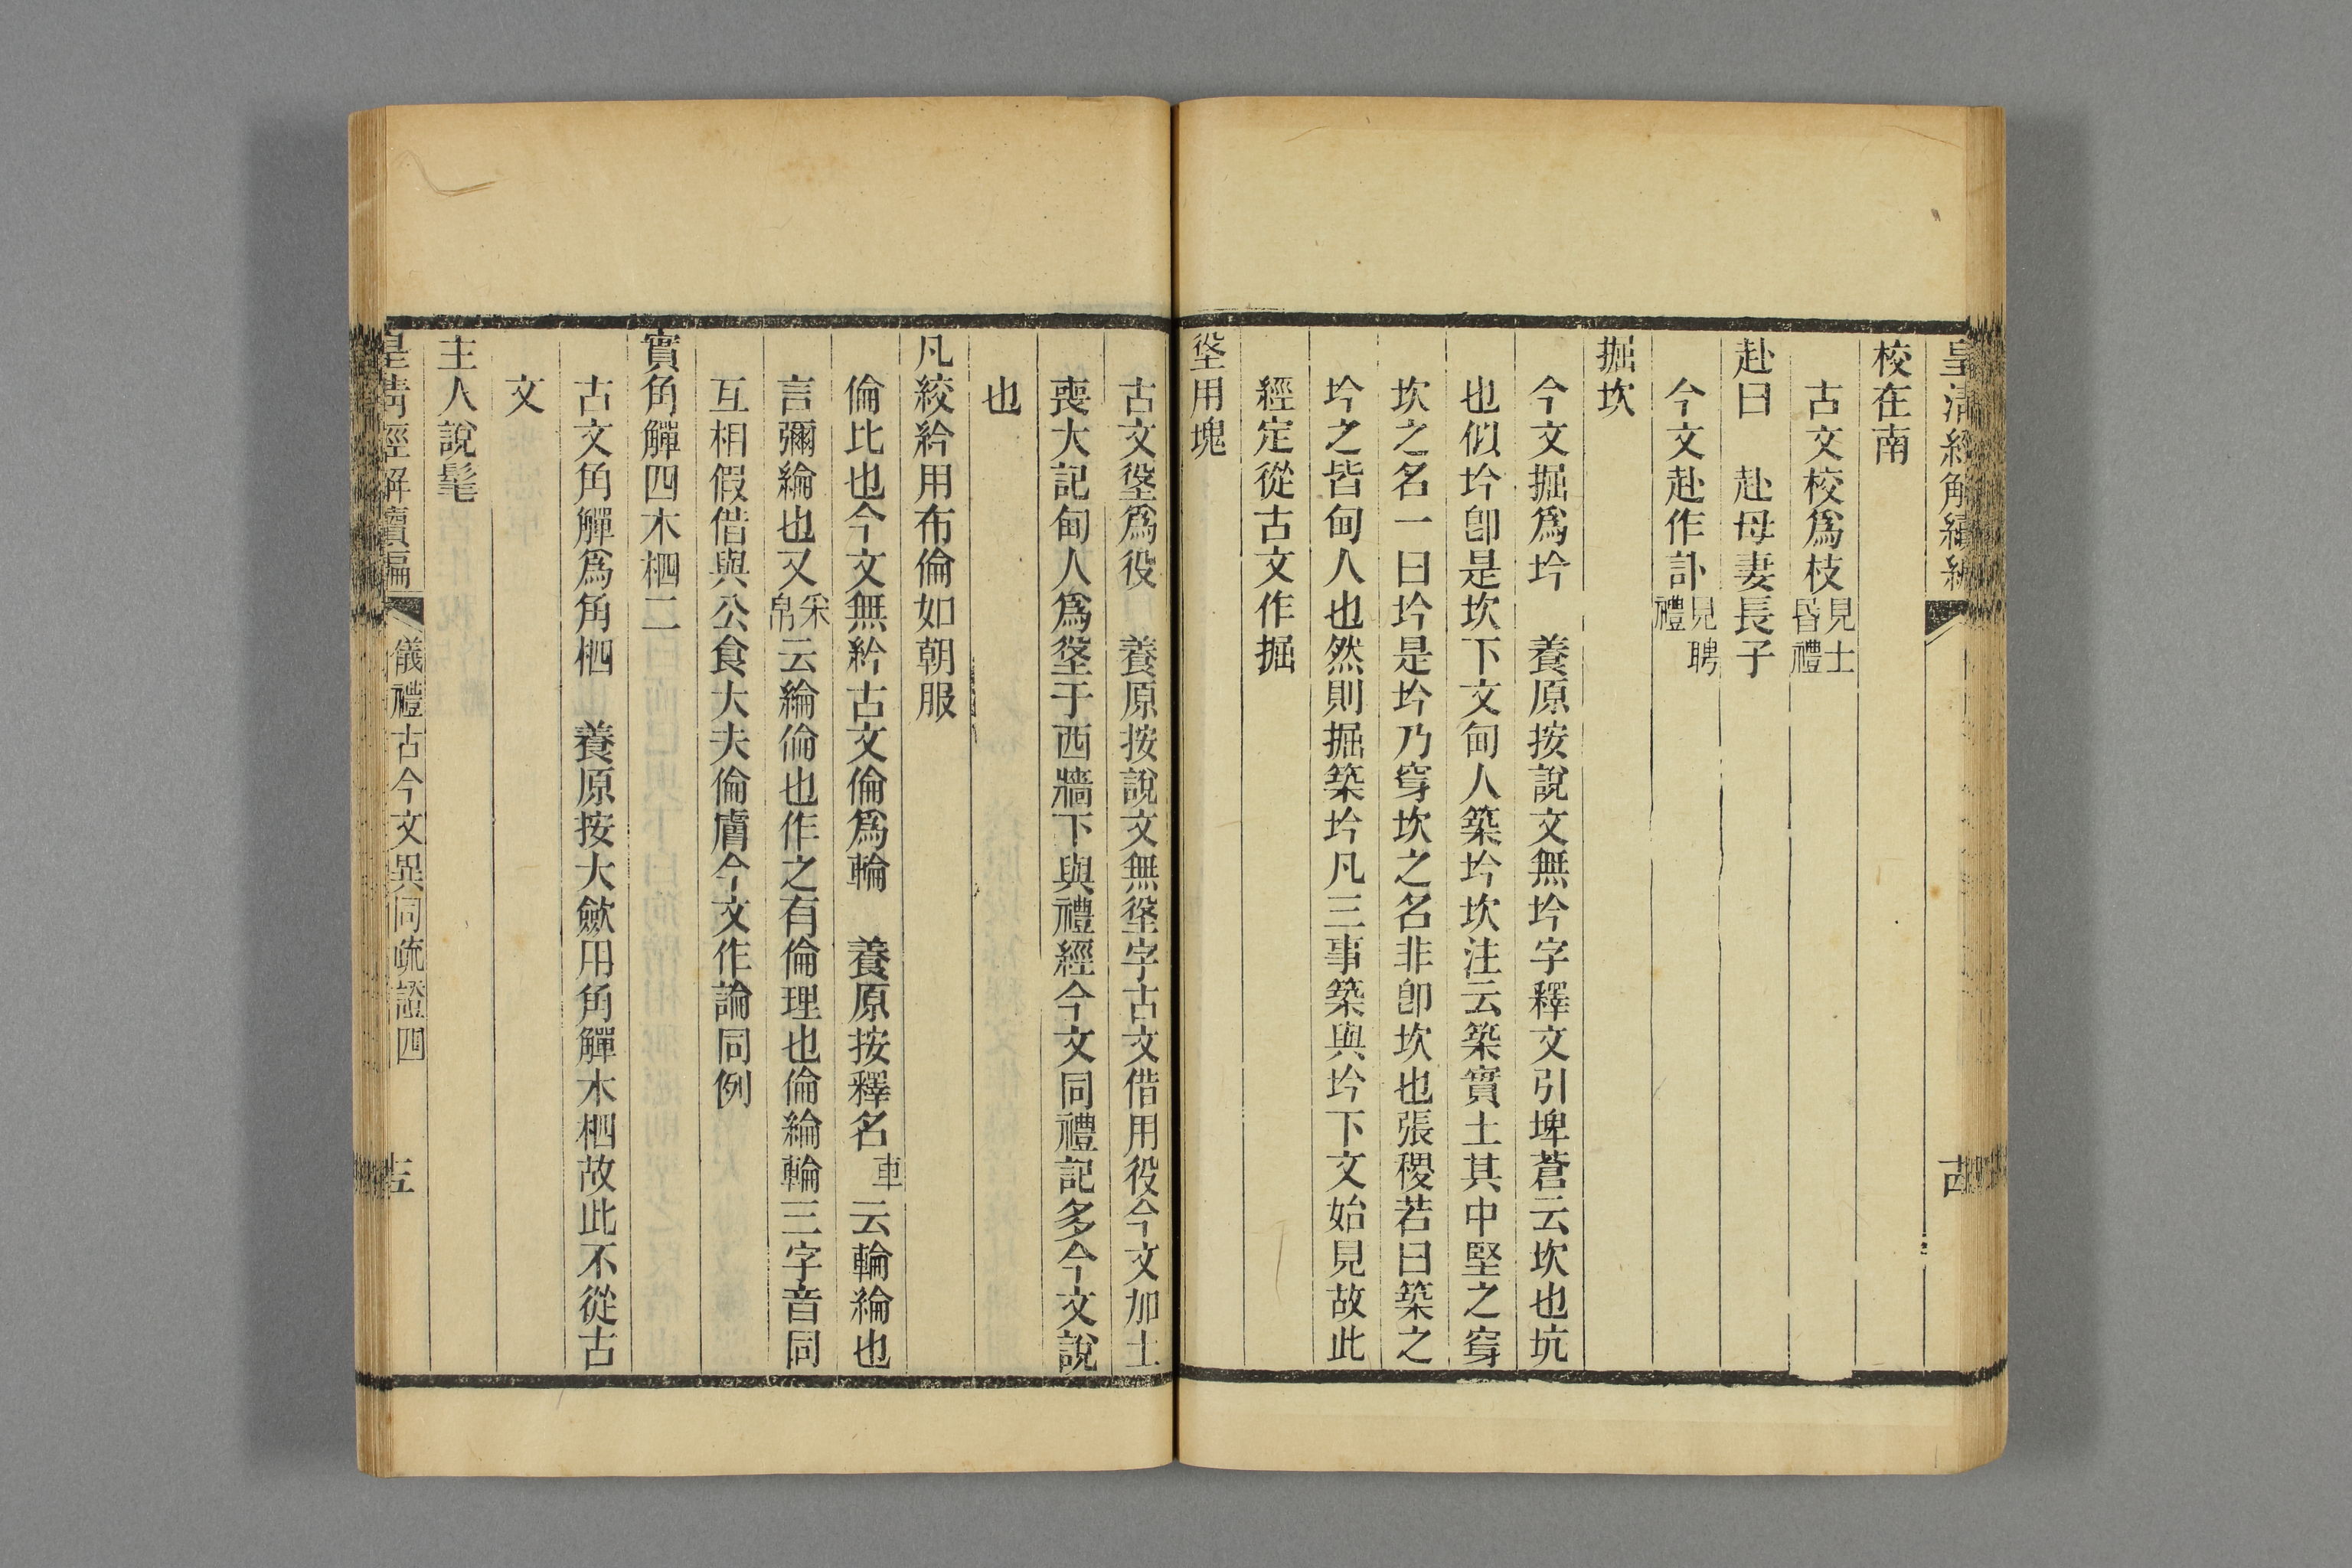 皇清經解續編
校在南
古文校爲枝見士昬禮
赴曰　赴母妻長子
今文赴作訃見聘禮
掘坎
今文掘爲坅　養原按說文無坅字釋文引埤蒼云坎也坑
也似坅卽是坎下文甸人築坅坎注云築實土其中堅之穿
坎之名一曰坅是坅乃穿坎之名非卽坎也張稷若曰築之
坅之皆甸人也然則掘築坅凡三事築與坅下文始見故此
經定從古文作掘
垼用塊
古文垼爲役　養原按說文無垼字古文借用役今文加土
喪大記甸人爲垼于西牆下與禮經今文同禮記多今文說
也
凡絞紟用布倫如朝服
倫比也今文無紟古文倫爲輪　養原按釋名車云輪綸也
言彌綸也又釆帛云綸倫也作之有倫理也倫綸輪三字音同
互相假借與公食大夫倫膚今文作論同例
實角觶四木柶二
古文角觶爲角柶　養原按大斂用角觶木柶故此不從古
文
主人說髦
皇清經解續編　儀禮古今文異同疏證四